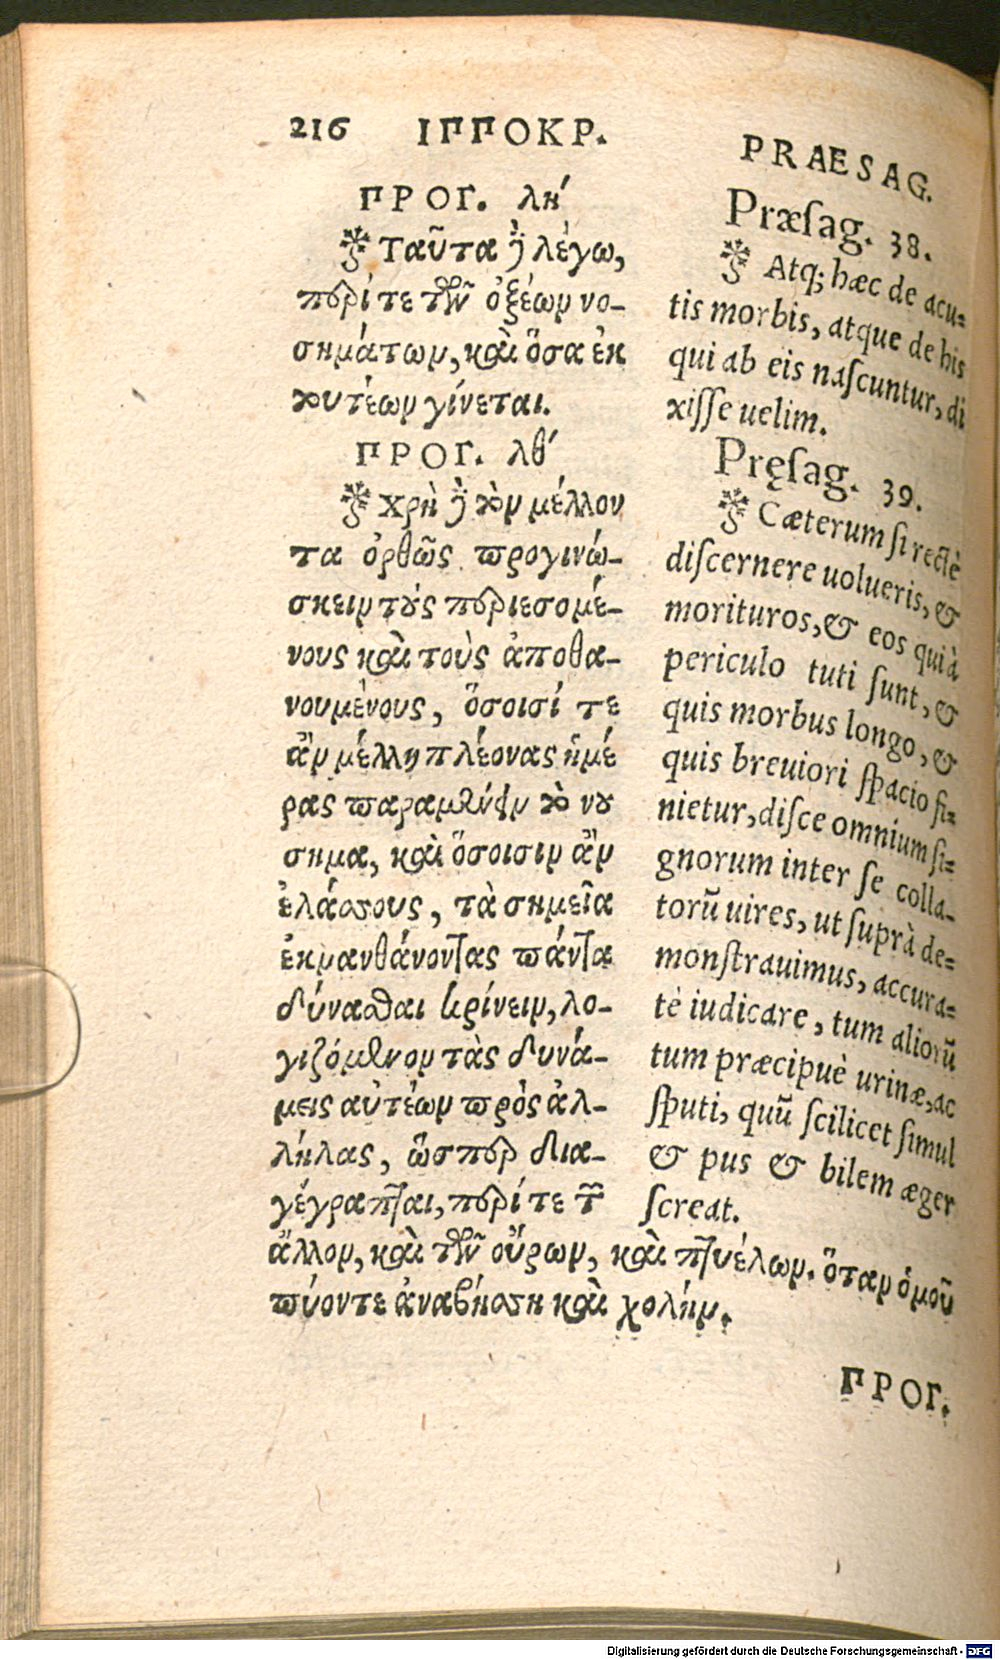 216 ΙΠΠΟΚΡ.
ΠΡΟΓ. λη´
Ταῦτα ἢ λέγω,
περί τε τῶν ὀξέων νο-
σημάτων, καὶ ὅσα ἐκ
τουτέων γίνεται.
ΠΡΟΓ. λθ´
Χρὴ ἢ τὸν μέλλον
τα ὀρθῶς προγινώ-
σκειν τοὺς περιεσομέ-
νους καὶ τοὺς ἀποθα-
νουμένους, ὅσοισί τε
ἂν μέλλῃ πλέονας ἡμέ
ρας παραμένειν τὸ νου
σημα, καὶ ὅσοισιν ἂν
ἐλάσσους, τὰ σημεῖα
ἐκμανθάνοντας πάντα
δύνασθαι κρίνειν, λο-
γιζόμενον τὰς δυνά-
μεις αὐτέων πρὸς ἀλ-
λήλας, ὥσπερ δια-
γέγραπται, περί τε τῶν
ἄλλων, καὶ τῶν οὔρων, καὶ πτυέλων. ὅταν ὁμοῦ
πύον τε ἀναβήσσῃ καὶ χολήν.
PRAESAG.
Præsag. 38.
Atq; hæc de acu-
tis morbis, atque de his
qui ab eis nascuntur, di
xisse uelim.
Pręsag. 39.
Cæterum si rectè
discernere uolueris, &
morituros, & eos qui à
periculo tuti sunt, &
quis morbus longo, &
quis breuiori spacio fi-
nietur, disce omnium si-
gnorum inter se colla-
torū uires, ut suprà de-
monstrauimus, accura-
tè iudicare, tum aliorū
tum præcipuè urinæ, ac
sputi, quū scilicet simul
& pus & bilem æger
screat.
ΠΡΟΓ.
Digitalisierung gefördert durch die Deutsche Forschungsgemeinschaft - DFG